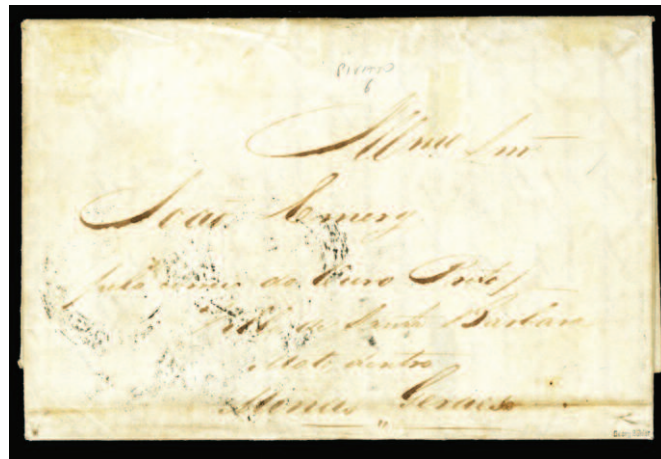 Illmo Snr
João Emery
pelo correio do Ouro Preto
de Santa Barbara
Mato dentro
Minas Geraes